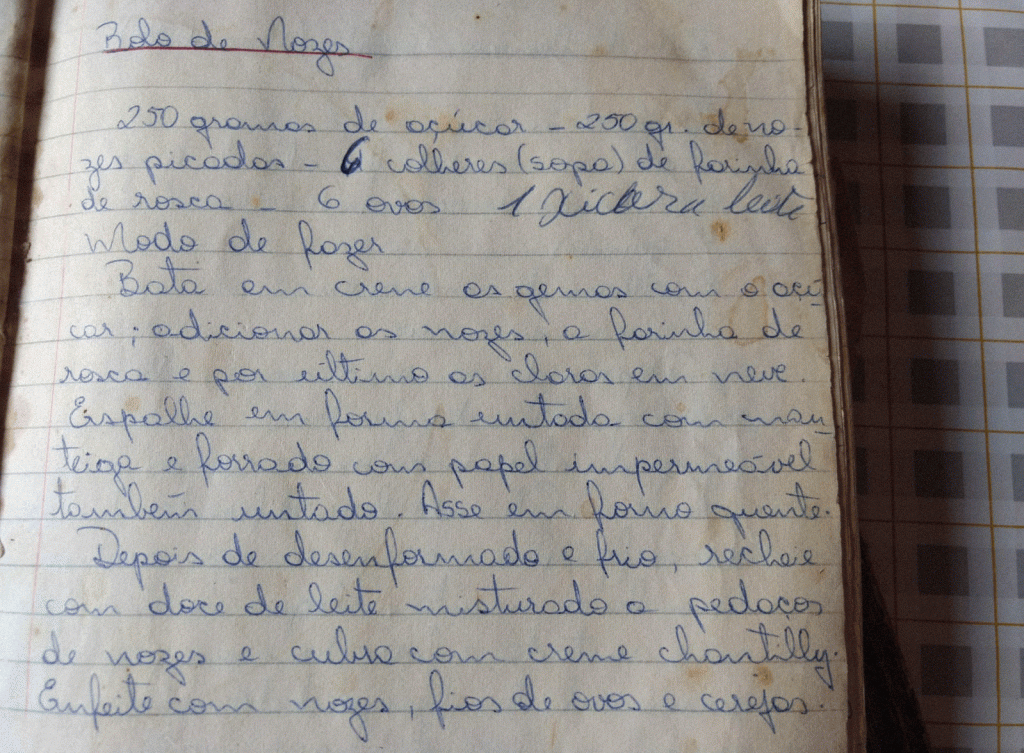 Bolo de Nozes
250 gramas de açúcar - 250 gr. de no-
zes picadas - 6 colheres (sopa) de farinha
de rosca - 6 ovos 1 xicara leite
Modo de fazer
Bata em creme as gemas com o açú-
car; adicionar as nozes, a farinha de
rosca e por último as claras em neve.
Espalhe em forma untada com man-
teiga e forrado com papel impermeável
também untado. Asse em forno quente.
Depois de desenformado e frio, recheie
com doce de leite misturado a pedaços
de nozes e cubra com creme chantilly.
Enfeite com nozes, fios de ovos e cerejas.